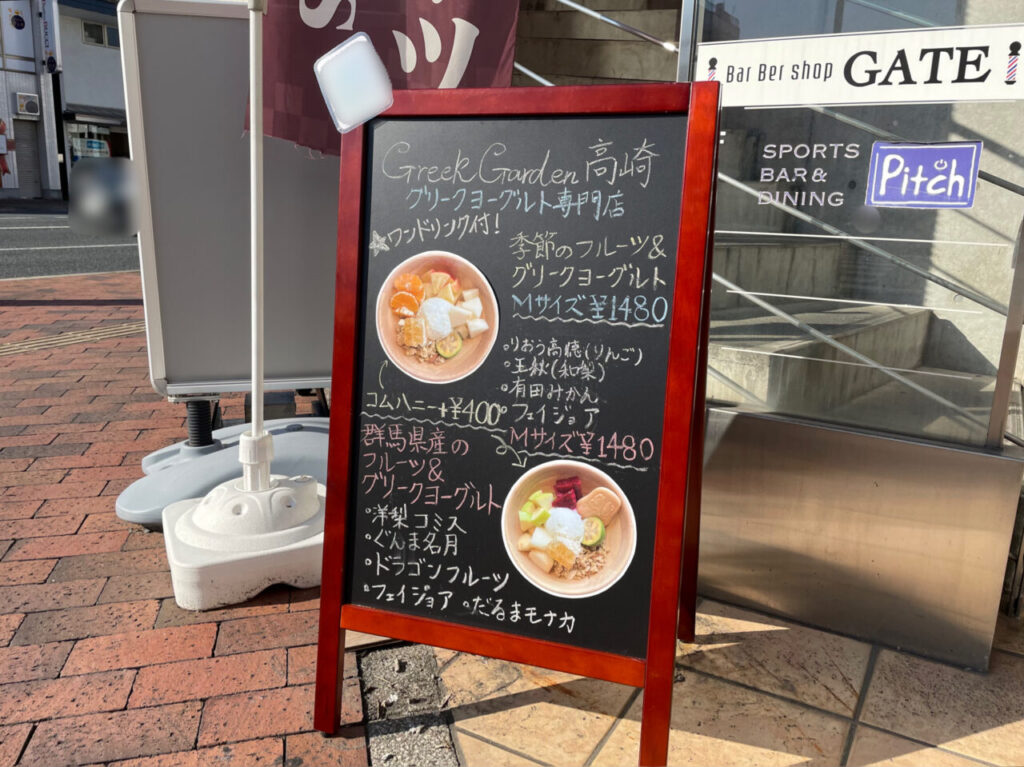 Greek Garden 高崎
グリークヨーグルト専門店
ワンドリンク付!
季節のフルーツ&
グリークヨーグルト
Mサイズ ¥1480
・りおう高聴(りんご)
・王秋(和梨)
・有田みかん
・フェイジョア
コムハニー+¥400
群馬県産の
フルーツ&
グリークヨーグルト
Mサイズ¥1480
・洋梨コミス
・ぐんま名月
・ドラゴンフルーツ
・フェイジョア ・だるまモナカ
Bar Ber shop GATE
SPORTS
BAR &
DINING
Pitch